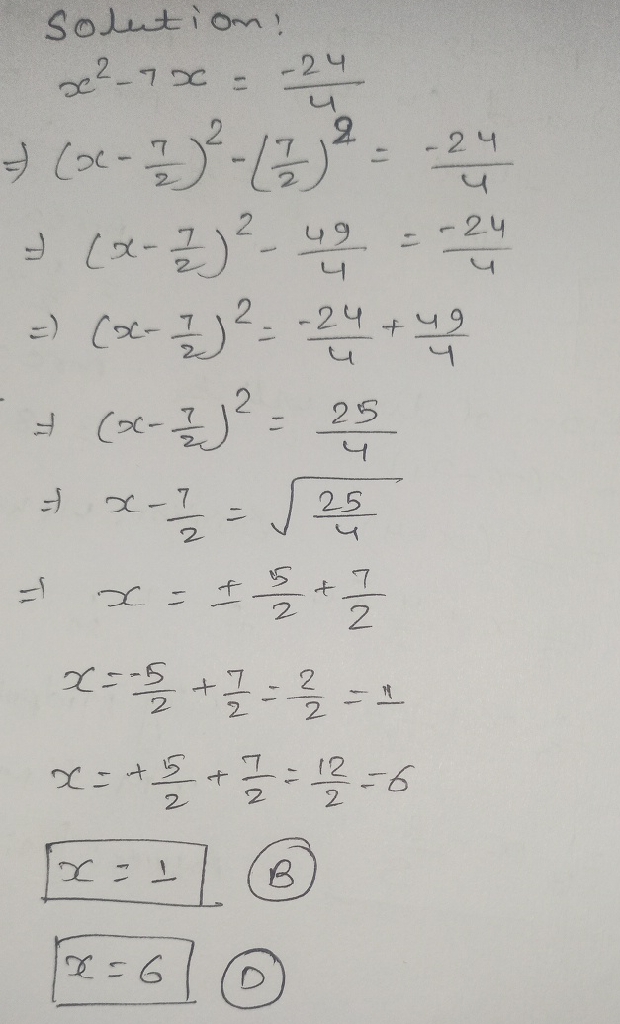 Solution:
x² - 7x = -24/4
⇒ (x - 7/2)² - (7/2)² = -24/4
⇒ (x - 7/2)² - 49/4 = -24/4
=) (x - 7/2)² = -24/4 + 49/4
⇒ (x - 7/2)² = 25/4
⇒ x - 7/2 = √(25/4)
⇒ x = ± 5/2 + 7/2
x = -5/2 + 7/2 = 2/2 = 1
x = +5/2 + 7/2 = 12/2 = 6
x = 1 B
x = 6 D